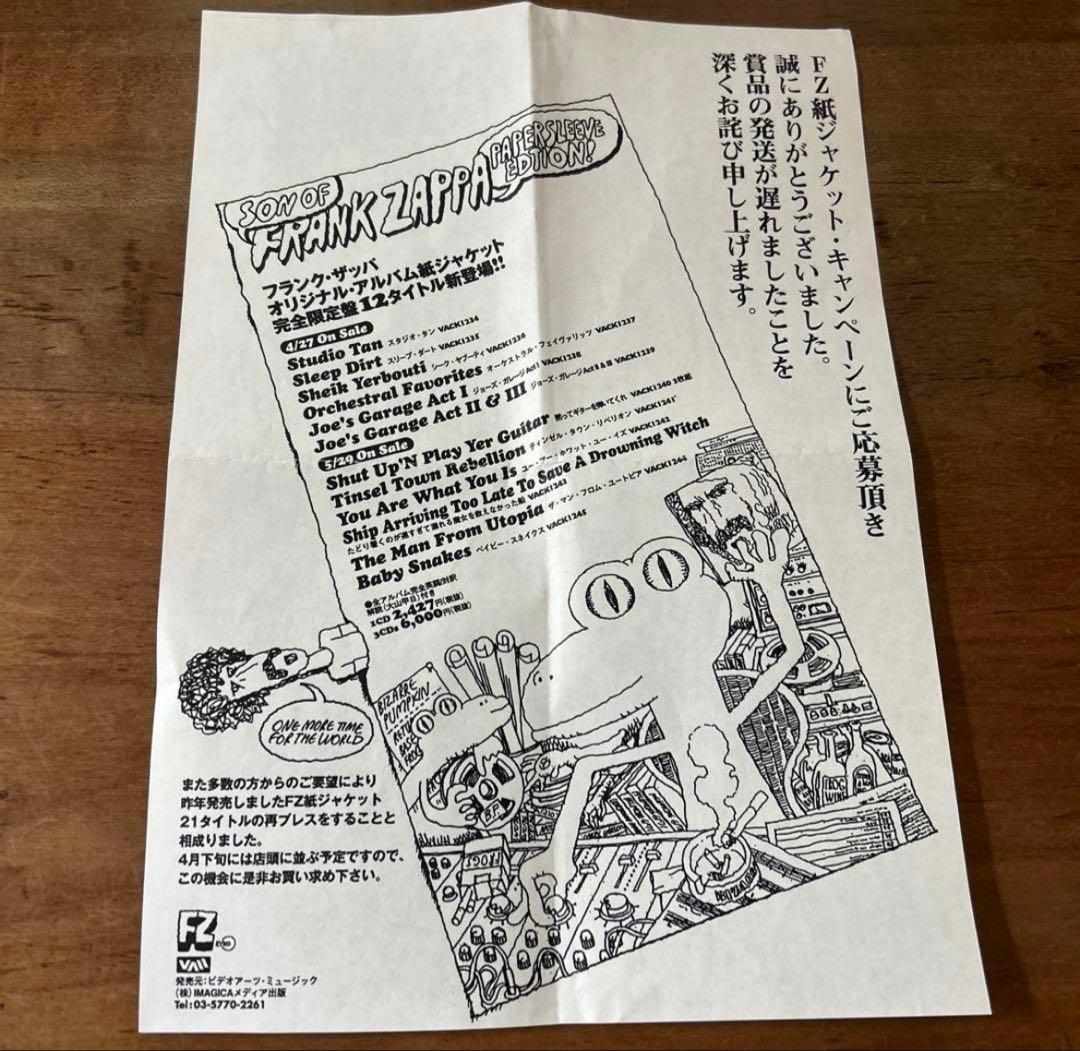 FZ紙ジャケット・キャンペーンにご応募頂き
誠にありがとうございました。
賞品の発送が遅れましたことを
深くお詫び申し上げます。
SON OF
FRANK ZAPPA
PAPERSLEEVE
EDTION!
フランク・ザッパ
オリジナル・アルバム紙ジャケット
完全限定盤12タイトル新登場!!
4/27 On Sale
Studio Tan スタジオ・タン VACK1234
Sleep Dirt スリープ・ダート VACK1235
Sheik Yerbouti シーク・ヤブーティ VACK1236
Orchestral Favorites オーケストラル・フェイヴァリッツ VACK1237
Joe's Garage Act I ジョーズ・ガレージAct I VACK1238
Joe's Garage Act II & III ジョーズ・ガレージAct II & III VACK1239
5/29 On Sale
Shut Up'N Play Yer Guitar 黙ってギターを弾いてくれ VACK1240 3枚組
Tinsel Town Rebellion ティンゼル・タウン・リベリオン VACK1241
You Are What You Is ユー・アー・ホワット・ユー・イズ VACK1242
Ship Arriving Too Late To Save A Drowning Witch
たどり着くのが遅すぎて溺れる魔女を救えなかった船 VACK1243
The Man From Utopia ザ・マン・フロム・ユートピア VACK1244
Baby Snakes ベイビー・スネイクス VACK1245
●全アルバム完全英詞/対訳
解説(大山甲日)付き
1CD 2,427円(税抜)
3CDs 6,000円(税抜)
BIZARRE
PUMPKIN
ONE MORE TIME
FOR THE WORLD
FROG
WINE
B.F.
FROGS
また多数の方からのご要望により
昨年発売しましたFZ紙ジャケット
21タイトルの再プレスをすることと
相成りました。
4月下旬には店頭に並ぶ予定ですので、
この機会に是非お買い求め下さい。
FZ
RYKO
VAM
発売元:ビデオアーツ・ミュージック
(株)IMAGICAメディア出版
Tel:03-5770-2261